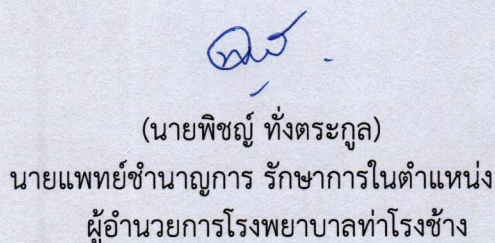 (นายพิชญ์ ทั่งตระกูล)
นายแพทย์ชำนาญการ รักษาการในตำแหน่ง
ผู้อำนวยการโรงพยาบาลท่าโรงช้าง